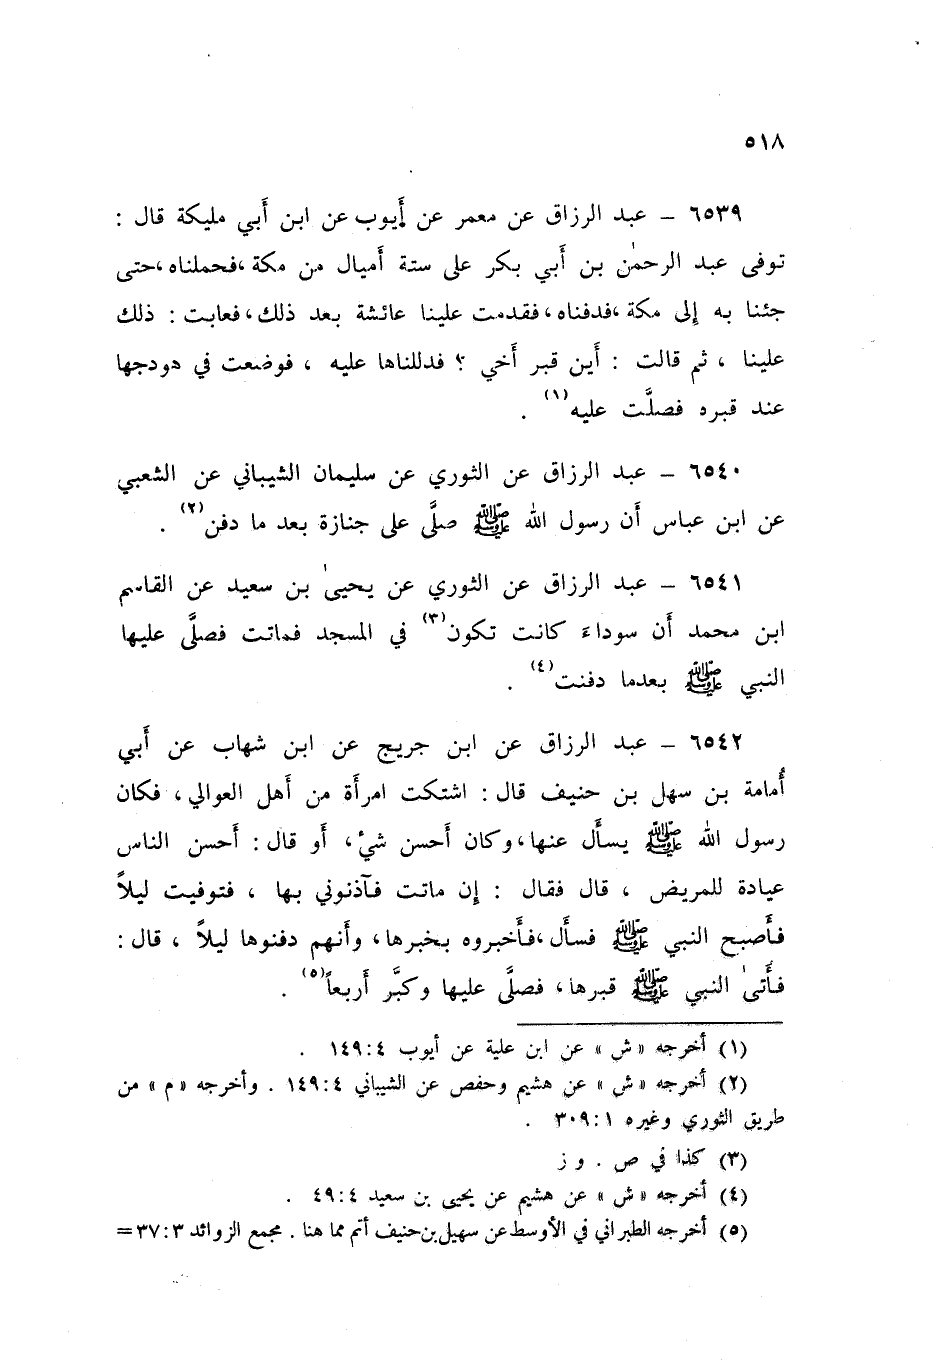 ٥١٨
٦٥٣٩ – عبد الرزاق عن معمر عن أيوب عن ابن أبي مليكة قال :
توفى عبد الرحمٰن بن أبي بكر على ستة أميال من مكة ، فحملناه ، حتى
جئنا به إلى مكة ، فدفناه ، فقدمت علينا عائشة بعد ذلك ، فعابت : ذلك
علينا ، ثم قالت : أين قبر أخي ؟ فدللناها عليه ، فوضعت في هودجها
عند قبره فصلَّت عليه (١) .
٦٥٤٠ – عبد الرزاق عن الثوري عن سليمان الشيباني عن الشعبي
عن ابن عباس أن رسول الله ﷺ صلَّى على جنازة بعد ما دفن (٢) .
٦٥٤١ – عبد الرزاق عن الثوري عن يحيىٰ بن سعيد عن القاسم
ابن محمد أن سوداءَ كانت تكون (٣) في المسجد فماتت فصلَّى عليها
النبي ﷺ بعدما دفنت (٤) .
٦٥٤٢ – عبد الرزاق عن ابن جريج عن ابن شهاب عن أبي
أُمامة بن سهل بن حنيف قال : اشتكت امرأة من أهل العوالي ، فكان
رسول الله ﷺ يسأل عنها ، وكان أحسن شيْء ، أو قال : أحسن الناس
عيادة للمريض ، قال فقال : إن ماتت فآذنوني بها ، فتوفيت ليلاً
فأصبح النبي ﷺ فسأل ، فأخبروه بخبرها ، وأنهم دفنوها ليلاً ، قال :
فأتىٰ النبي ﷺ قبرها ، فصلَّى عليها وكبَّر أربعاً (٥) .
(١) أخرجه « ش » عن ابن علية عن أيوب ٤ : ١٤٩ .
(٢) أخرجه « ش » عن هشيم وحفص عن الشيباني ٤ : ١٤٩ . وأخرجه « م » من
طريق الثوري وغيره ١ : ٣٠٩ .
(٣) كذا في ص . و ز
(٤) أخرجه « ش » عن هشيم عن يحيى بن سعيد ٤ : ٤٩ .
(٥) أخرجه الطبراني في الأوسط عن سهيل بن حنيف أتم مما هنا . مجمع الزوائد ٣ : ٣٧ =